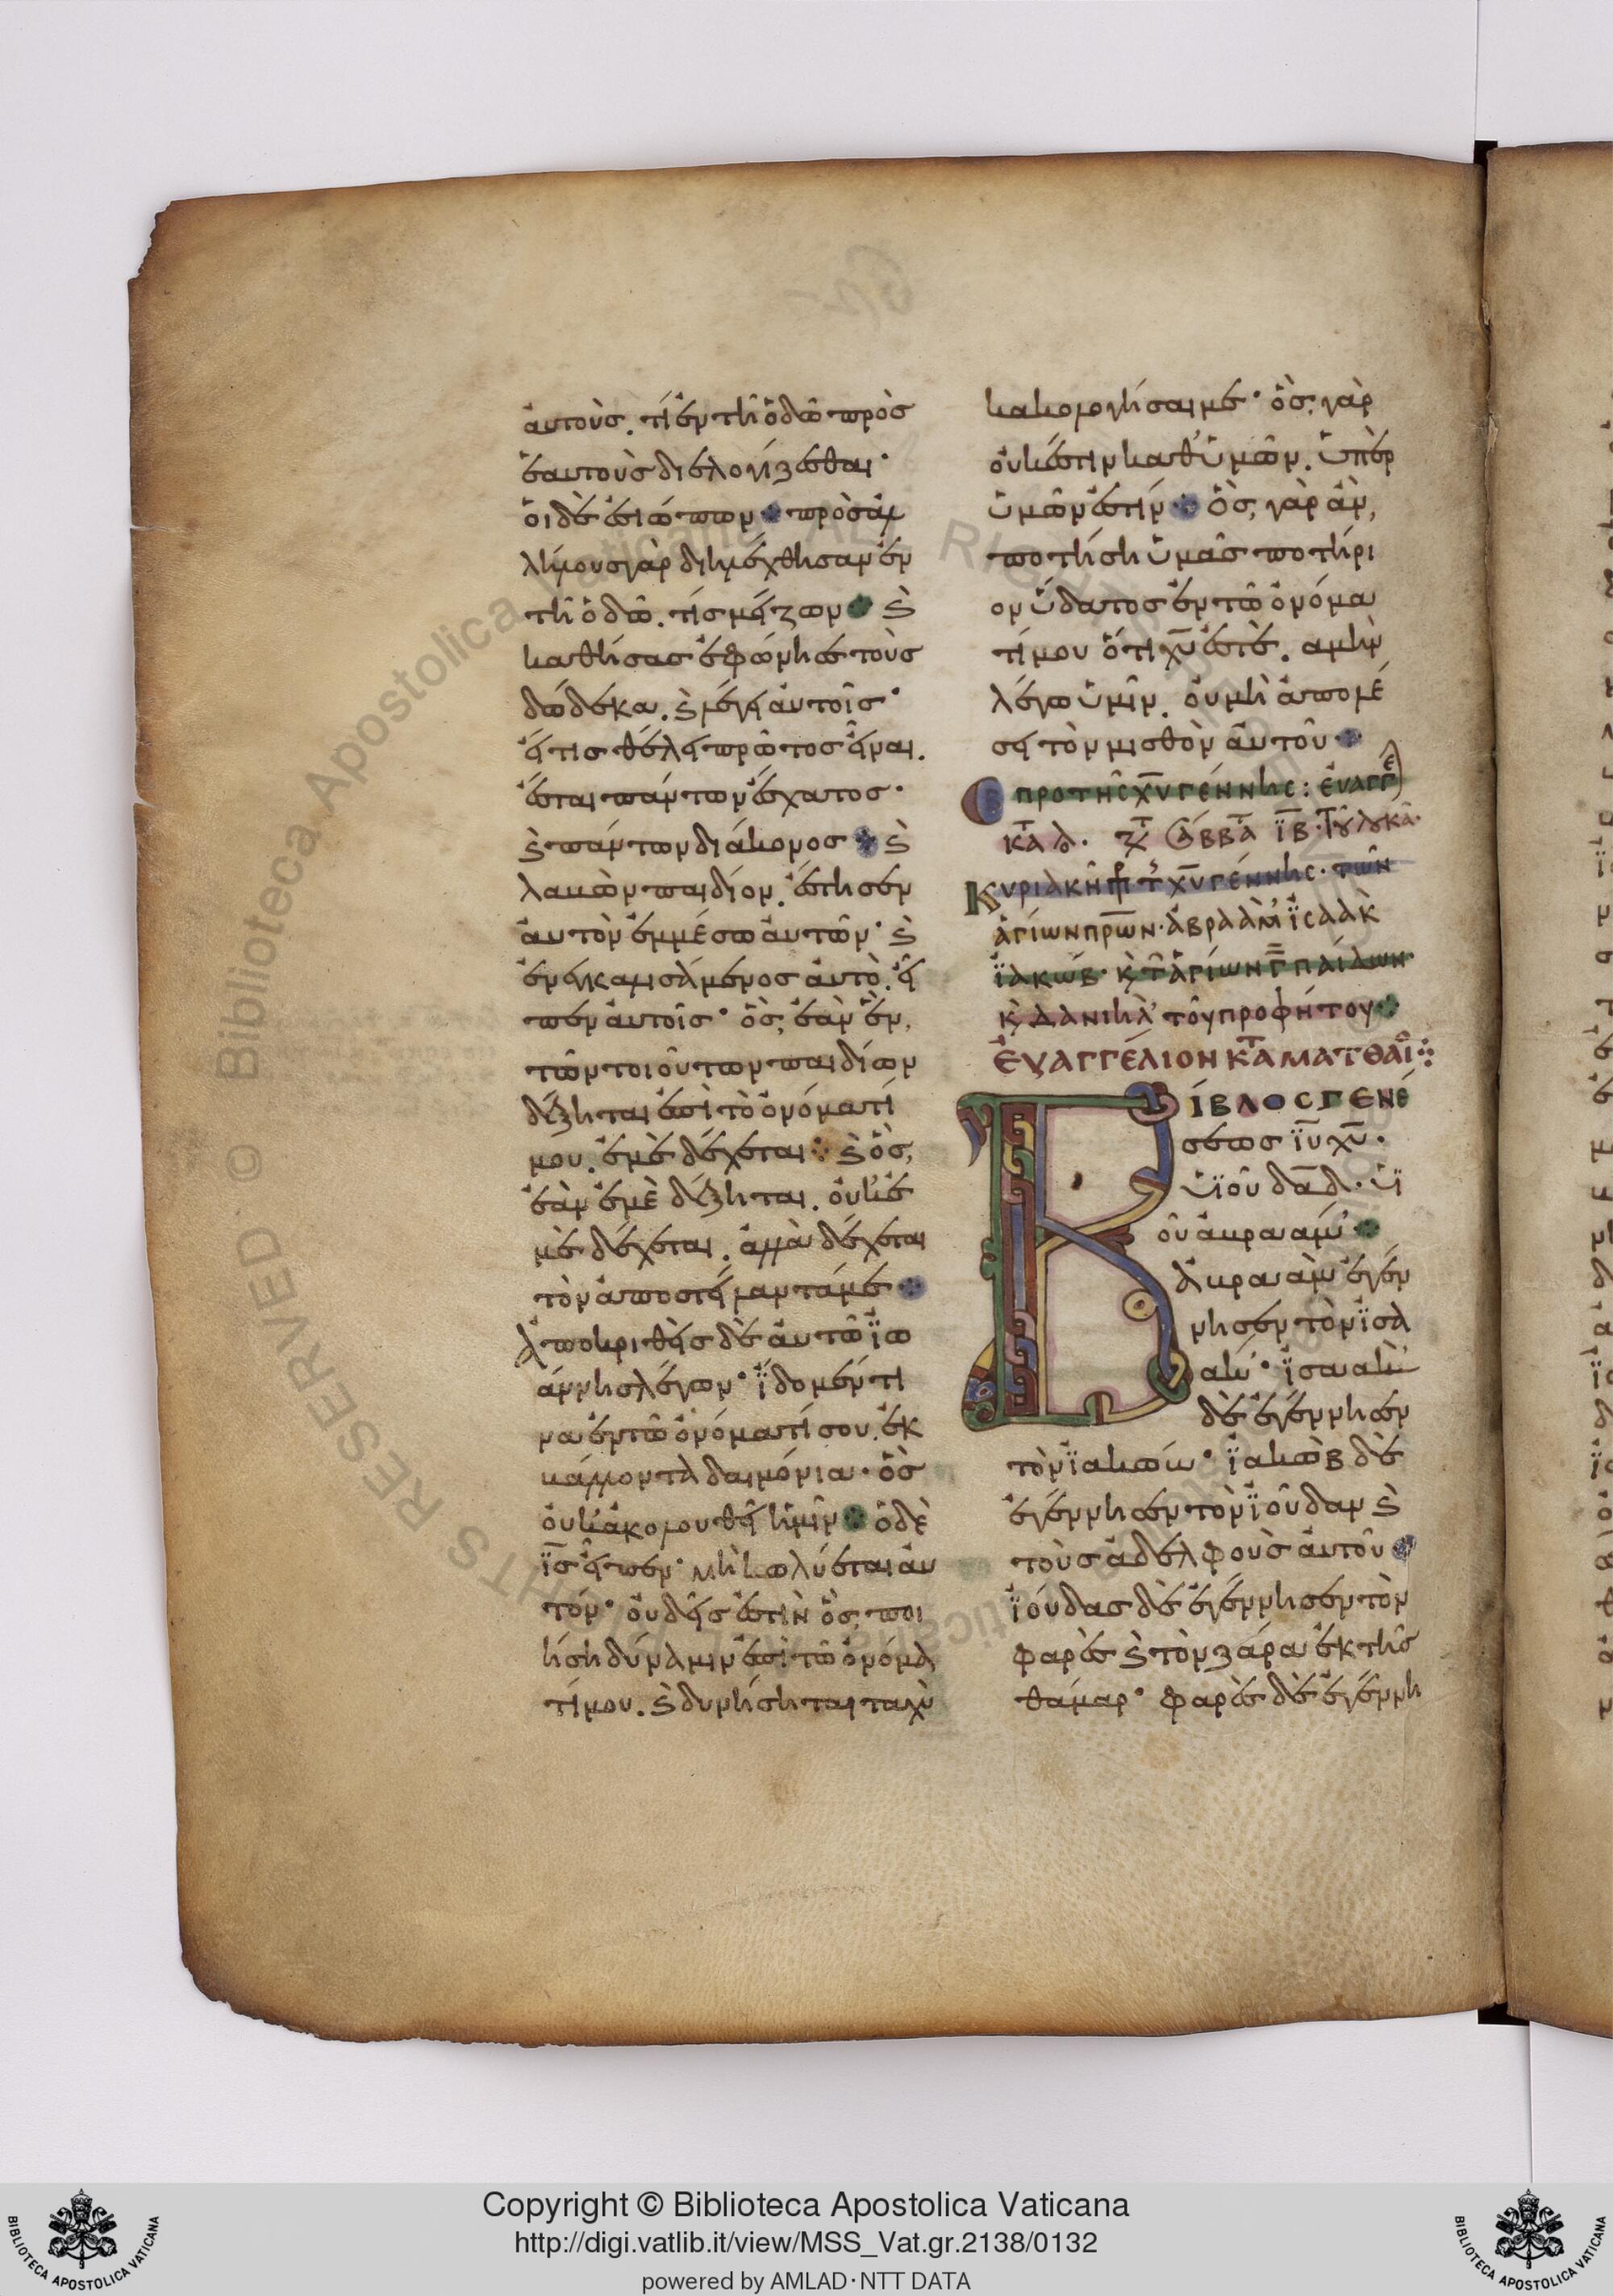 ἀυτοὺς. τί ἐν τῆ ὁδῶ πρὸς
ἑαυτοὺς διελογίζεσθαι·
ὁι δὲ ἐσιώπων πρὸς ἀλ
λήλους γὰρ διηλέχθησαν ἐν
τῆ ὁδῶ. τίς μείζων ϗ
καθίσας ἐφώνησε τοὺς
δώδεκα. ϗ λέγει ἀυτοῖς·
εἴ τις θέλει πρῶτος εἶναι.
ἔσται πάντων ἔσχατος·
ϗ πάντων διάκονος ϗ
λαβὼν παιδίον. ἔστησεν
ἀυτὸν ἐμμέσω ἀυτῶν· ϗ
ἐνεγκαλισάμενος ἀυτὸ. εἶ
πεν ἀυτοῖς· ὃς ἐὰν ἓν,
τῶν τοιούτων παιδίων
δέξηται ἐπὶ τὸ ὀνόματί
μου. ἐμὲ δέχεται ϗ ὃς,
ἐὰν ἐμὲ δέξηται. οὐκ ἐ
μὲ δέχεται. ἀλλὰ δέχεται
τὸν ἀποστείλαντάμε
Ἀποκριθεὶς δὲ ἀυτῶ ἰω
άννης λέγων· ἴδομέν τι
να ἐν τῶ ὀνόματί σου. ἐκ
βάλλοντα δαιμόνια· ὃς
οὐκ ἀκολουθεῖ ἡμῖν ὁ δὲ
ι̅ς̅ εἶπεν· μὴ κωλύεται ἀυ
τόν· οὐδεὶς ἐστὶν ὃς, ποι
ήση δύναμιν ἐπὶ τῶ ὀνόμα
τί μου. ϗ δυνήσηται ταχὺ
κακολογῆσαι με· ὃς, γὰρ
οὐκ ἔστιν καθ' ὑμῶν. ὑπὲρ
ὑμῶν ἐστίν ὃς, γὰρ ἂν,
ποτήση ὑμᾶς ποτήρι
ον ὕδατος ἐν τῶ ὀνόμα
τί μου ὅτι χ̅υ̅ ἐστὲ. αμὴν
λέγω ὑμῖν. οὐ μὴ ἀπολέ
σει τὸν μισθὸν ἀυτοῦ
ΠΡΟ ΤΗΣ Χ̅Υ̅ ΓΕΝΝΗϹ: ΕΥΑΓΓΕ
ΚΑΒΒΑ Ι̅Β̅ ΤΟΥ ΛΟΥΚΑ·
ΚΥΡΙΑΚΗ ΠΡ Τ Χ̅Υ̅ ΓΕΝΝΗϹ· ΤΩΝ
ΑΓΙΩΝ ΠΡ̅ΩΝ· ΑΒΡΑΑΜ ΙϹΑΑΚ
ΙΑΚΩΒ· Κ Τ ΑΓΙΩΝ Γ̅ ΠΑΙΔΩΝ
Κ ΔΑΝΙΗΛ ΤΟΥ ΠΡΟΦΗΤΟΥ
ΕΥΑΓΓΕΛΙΟΝ ΚΑΤ ΜΑΤΘΑΙ
ΒΙΒΛΟϹ ΓΕΝΕ
σεως ι̅υ̅ χ̅υ̅.
ὑϊοῦ δα̅δ̅. ὑϊ
οῦ ἀβρααμ
Ἀβρααμ ἐγέν
νησεν τὸν ἰσα
ακ· ἰσαακ
δὲ ἐγέννησεν
τὸν ἰακώβ· ἰακὼβ δὲ
ἐγέννησεν τὸν ἰούδαν ϗ
τοὺς ἀδελφοὺς ἀυτοῦ
ἰούδας δὲ ἐγέννησεν τὸν
φαρὲς ϗ τὸν ζάρα ἐκ τῆς
θάμαρ· φαρὲς δὲ ἐγέννη
Copyright © Biblioteca Apostolica Vaticana
http://digi.vatlib.it/view/MSS_Vat.gr.2138/0132
powered by AMLAD·NTT DATA
BIBLIOTECA APOSTOLICA VATICANA
BIBLIOTECA APOSTOLICA VATICANA